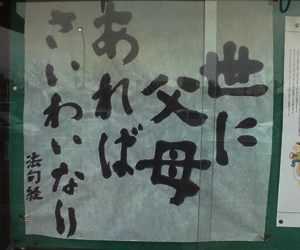 世に
父母
あれば
さいわいなり
法句経